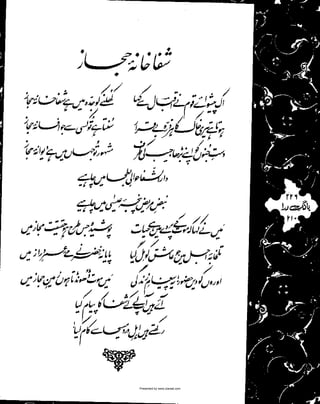 شفاخانۂ حجاز
اک پیشوائے قوم نے اقبال سے کہا کھلنے کو جدہ میں ہے شفاخانۂ حجاز
ہوتا ہے تیری خاک کا ہر ذرہ بے قرار سنتا ہے تو کسی سے جو افسانۂ حجاز
دستِ جنوں کو اپنے بڑھا جیب کی طرف مشہور تو جہاں میں ہے دیوانۂ حجاز
دارالشفا حوالیِ بطحا میں چاہیے
نبضِ مریض پنجۂ عیسیٰ میں چاہیے
میں نے کہا کہ موت کے پردے میں ہے حیات پوشیدہ جس طرح ہو حقیقت مجاز میں
تلخابۂ اجل میں جو عاشق کو مل گیا پایا نہ خضر نے مئے عمرِ دراز میں
اوروں کو دیں حضور! یہ پیغامِ زندگی میں موت ڈھونڈتا ہوں زمینِ حجاز میں
آئے ہیں آپ لے کے شفا کا پیام کیا
رکھتے ہیں اہلِ درد مسیحا سے کام کیا
۲۲۹
بانگِ درا
۲۱۰
Presented by www.ziaraat.com